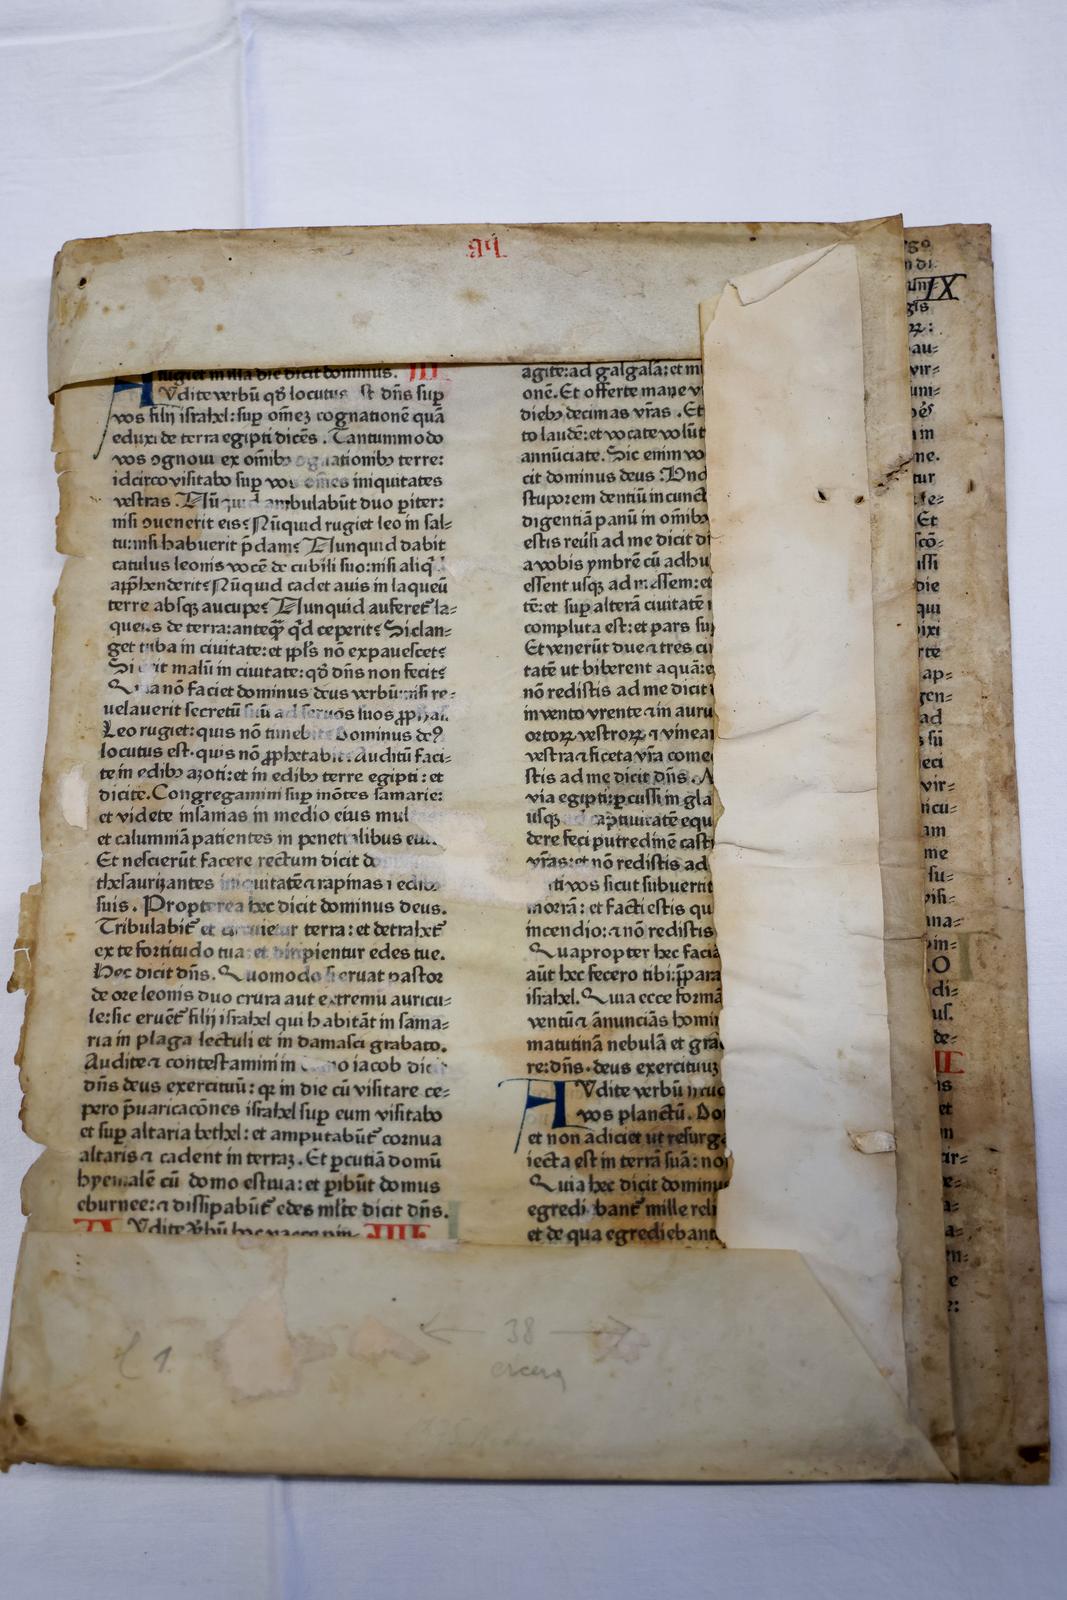 fugiet in illa die dicit dominus. III
AVdite verbū qđ locutus est dñs sup
vos filij israhel: sup omēz cognationē quā
eduxi de terra egipti dicēs. Tantummodo
vos ꝯgnoui ex omībꝫ ꝯgnationibꝫ terre:
idcirco visitabo sup vos omēs iniquitates
vestras. Nūquid ambulabūt duo piter:
nisi ꝯuenerit eis? Nūquid rugiet leo in sal-
tu: nisi habuerit p̄dam? Nunquid dabit
catulus leonis vocē de cubili suo: nisi aliqͥd
app̄henderit? Nūquid cadet auis in laqueū
terre absqꝫ aucupe? Nunquid auferet̃ la-
queus de terra: anteqꝫ̄ qͥd ceperit? Si clan-
get tuba in ciuitate: et ppl̄s nō expauescet?
Si erit malū in ciuitate: qđ dñs non fecit?
Quia nō faciet dominus deus verbū: nisi re-
uelauerit secretū suū ad seruos suos ꝓphās.
Leo rugiet: quis nō timebit? Dominus de9
locutus est. quis nō ꝓphetabit? Auditū faci-
te in edibꝫ azoti: et in edibꝫ terre egipti: et
dicite. Congregamini sup mōtes samarie:
et videte insamas in medio eius mul
et calumniā patientes in penetralibus eius.
Et nescierūt facere rectum dicit do
thesaurizantes iniquitatē ⁊ rapinas ī edibꝫ
suis. Propterea hec dicit dominus deus.
Tribulabit̃ et circuietur terra: et detrahet̃
ex te fortitudo tua: et diripientur edes tue.
Hec dicit dñs. Quomodo si eruat pastor
de ore leonis duo crura aut extremū auricu-
le: sic eruēt̃ filij israhel qui habitāt in sama-
ria in plaga lectuli et in damasci grabato.
Audite ⁊ contestamini in domo iacob dicit
dñs deus exercituū: qꝛ in die cū visitare ce-
pero p̄uaricacōnes israhel sup eum visitabo
et sup altaria bethel: et amputabūt̃ cornua
altaris ⁊ cadent in terraꝫ. Et pcutiā domū
hyemalē cū domo estiua: et pibūt domus
eburnee: ⁊ dissipabūt̃ edes ml̄te dicit dñs.
AVdite v̄bū hoc vacce pin- IIII
agite: ad galgalā: et mu
onē. Et offerte mane v
diebꝫ decimas vr̄as. Et
to laudē: et vocate volūt
annūciate. Sic enim vo
cit dominus deus. Vnd
stuporem dentiū in cunct
digentiā panū in omībꝫ
estis reūsi ad me dicit dñ
a vobis ymbrē cū adhu
essent usqꝫ ad messem: et
tē: et sup alterā ciuitatē
compluta est: et pars su
Et venerūt due ⁊ tres ci
tatē ut biberent aquā: e
nō redistis ad me dicit
in vento vrente ⁊ in auru
ortoꝝ vestroꝝ ⁊ vinear
vestra ⁊ ficeta vr̄a come
stis ad me dicit dñs.
via egipti: pcussi in gla
usqꝫ ad captiuitatē equ
dere feci putredinē castr
vr̄as: et nō redistis ad
ti vos sicut subuertit
morrā: et facti estis qu
incendio: ⁊ nō redistis
Quapropter hec facia
aūt hec fecero tibi: p̄para
israhel. Quia ecce formā
ventū ⁊ ānunciās homi
matutinā nebulā et gra
re: dñs deus exercituū
AVdite verbū
vos planctū. Do
et non adiciet ut resurg
iecta est in terrā suā: no
Quia hec dicit dominus
egrediebant̃ mille reli
et de qua egrediebant
IX
gis
au-
vir-
um-
me.
tur
Et
scō-
die
qui
ixi
rte
ap-
gen-
ad
sū
eci
vir-
icu-
am
me
su-
O
di-
us.
de-
is
et
l 1.
← 38 →